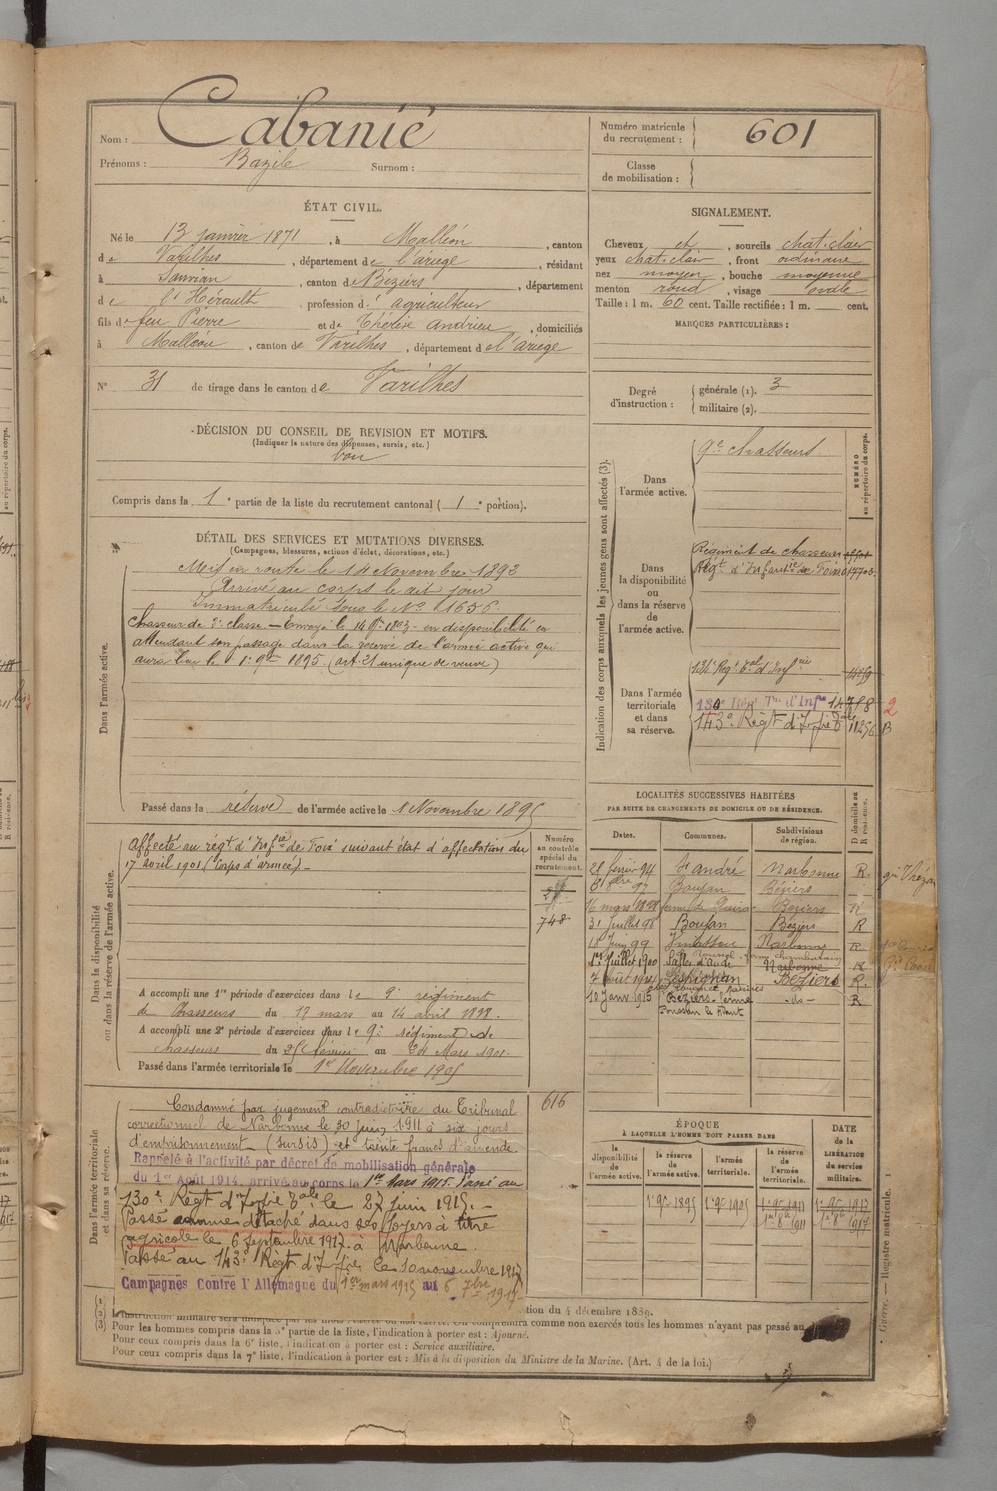 Nom : Cabanié
Prénoms : Bazile Surnom :
Numéro matricule du recrutement : 601
Classe de mobilisation :
ÉTAT CIVIL.
Né le 13 janvier 1871, à Malléon, canton
de Varilhes, département de l'ariege, résidant
à Sauvian, canton de Béziers, département
de l'Hérault, profession d' agriculteur
fils de feu Pierre et de Thérèse Andrieu, domiciliés
à Malléon, canton de Varilhes, département de l'ariege
N° 31 de tirage dans le canton de Varilhes
SIGNALEMENT.
Cheveux et, sourcils chat. clair
yeux chat. clair, front ordinaire
nez moyen, bouche moyenne
menton rond, visage ovale
Taille : 1 m. 60 cent. Taille rectifiée : 1 m. cent.
MARQUES PARTICULIÈRES :
Degré d'instruction : générale (1). 3
militaire (2).
DÉCISION DU CONSEIL DE REVISION ET MOTIFS.
(Indiquer la nature des dispenses, sursis, etc.)
bon
Compris dans la 1e partie de la liste du recrutement cantonal ( 1e portion).
DÉTAIL DES SERVICES ET MUTATIONS DIVERSES.
(Campagnes, blessures, actions d'éclat, décorations, etc.)
Dans l'armée active.
Mis en route le 14 Novembre 1892
Arrivé au corps le dit jour
Immatriculé sous le N° 1656
Chasseur de 2e classe. — Envoyé le en disponibilité en
attendant son passage dans la reserve de l'armée active qui
aura lieu le 1er 9bre 1895 (art. 21 unique de veuve)
Passé dans la réserve de l'armée active le 1 Novembre 1895
Indication des corps auxquels les jeunes gens sont affectés (3).
NUMÉRO au répertoire du corps.
Dans l'armée active.
9e chasseurs.
Dans la disponibilité ou dans la réserve de l'armée active.
Régiment de chasseurs
Régt d'Infanterie de Foix
Dans l'armée territoriale et dans sa réserve.
Regt Tal d'Infrie
130 Régt Tal d'Infie
143e Régt d'Infie Tale 11256
Dans la disponibilité ou dans la réserve de l'armée active.
Affecté au régt d'Infie de Foix suivant état d'affectation du
17 avril 1901 (Corps d'armée). —
Numéro au contrôle spécial du recrutement.
748
A accompli une 1re période d'exercices dans le 9e régiment
de Chasseurs du 17 mars au 14 avril 1898.
A accompli une 2e période d'exercices dans le 9e régiment de
chasseurs du 25 février au 24 Mars 1901.
Passé dans l'armée territoriale le 1er Novembre 1905
LOCALITÉS SUCCESSIVES HABITÉES
PAR SUITE DE CHANGEMENTS DE DOMICILE OU DE RÉSIDENCE.
Dates. Communes. Subdivisions de région. D domicile ou R résidence.
28 février 94 St André Narbonne R.
97 Boujan Béziers
16 mars 1898 Béziers R
31 Juillet 98 Boujan Béziers R
18 Juin 99 Vinassan Narbonne R
1er Juillet 1900 Salles d'aude Narbonne R
7 août 1901 Lespignan Béziers R.
10 Janv 1915 Béziers ferme -do- R
Dans l'armée territoriale et dans sa réserve.
616
Condamné par jugement contradictoire du Tribunal
correctionnel de Narbonne le 30 juin 1911 à six jours
d'emprisonnement (sursis) et trente francs d'amende
Rappelé à l'activité par décret de mobilisation générale
du 1er Août 1914, arrivé au corps le 1er Mars 1915. Passé au
130e Régt d'Infie Tale le 27 Juin 1915. —
Passé comme détaché dans ses foyers à titre
agricole le 6 Septembre 1917 à Narbonne.
Passé au 143e Régt d'Infie le 10 novembre 1917
Campagnes Contre l'Allemagne du 1er mars 1915 au 6 7bre 1917
ÉPOQUE
À LAQUELLE L'HOMME DOIT PASSER DANS
la disponibilité de l'armée active. la réserve de l'armée active. l'armée territoriale. la réserve de l'armée territoriale.
DATE de la LIBÉRATION du service militaire.
1er 9bre 1895 1er 9bre 1905 1er 9bre 1911 1er 9bre 1917
1er 8bre 1911 1er 8bre 1917
Guerre. — Registre matricule. 1
(1)
tion du 4 décembre 1889.
(2) comprendra comme non exercés tous les hommes n'ayant pas passé au
(3) Pour les hommes compris dans la 5e partie de la liste, l'indication à porter est : Ajourné.
Pour ceux compris dans la 6e liste, l'indication à porter est : Service auxiliaire.
Pour ceux compris dans la 7e liste, l'indication à porter est : Mis à la disposition du Ministre de la Marine. (Art. 4 de la loi.)